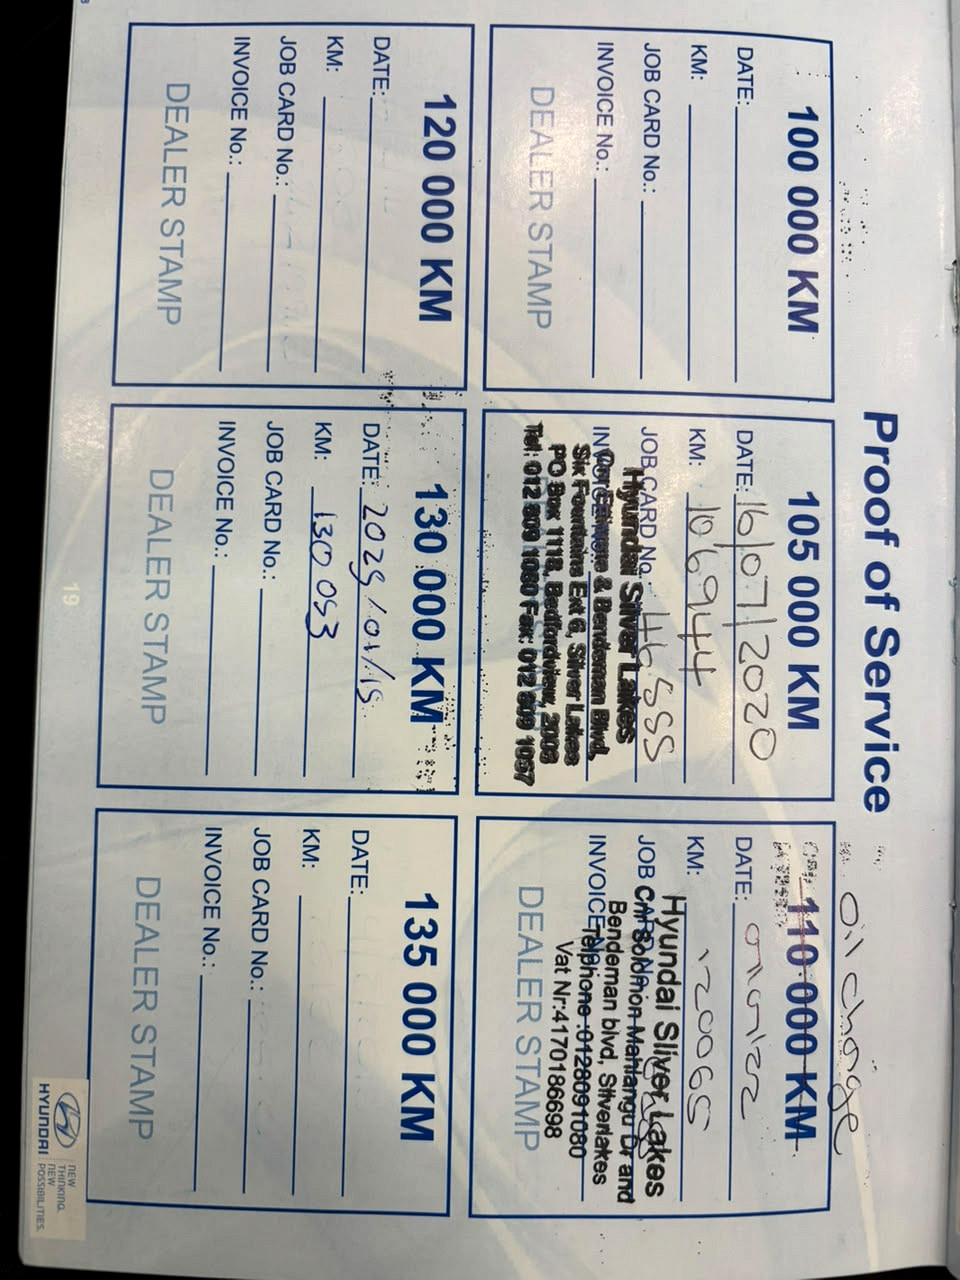 Proof of Service
100 000 KM
DATE:
KM:
JOB CARD No.:
INVOICE No.:
DEALER STAMP
105 000 KM
DATE: 16/07/2020
KM: 106944
JOB CARD No.: 46555
Hyundai Silver Lakes
INVOICE No.:
& Bendeman Blvd,
Six Fountains Ext 6, Silver Lakes
PO Box 1118, Bedfordview, 2008
Tel: 012 809 1080 Fax: 012 809 1087
DEALER STAMP
oil change
110 000 KM
DATE:
KM: 120065
JOB CARD No.:
Hyundai Silver Lakes
Cnr Solomon Mahlangu Dr and
Bendeman blvd, Silverlakes
INVOICE No.:
Telphone :0128091080
Vat Nr:4170186698
DEALER STAMP
120 000 KM
DATE:
KM:
JOB CARD No.:
INVOICE No.:
DEALER STAMP
130 000 KM
DATE: 2025/01/15
KM: 130 053
JOB CARD No.:
INVOICE No.:
DEALER STAMP
135 000 KM
DATE:
KM:
JOB CARD No.:
INVOICE No.:
DEALER STAMP
19
HYUNDAI
NEW
THINKING.
NEW
POSSIBILITIES.